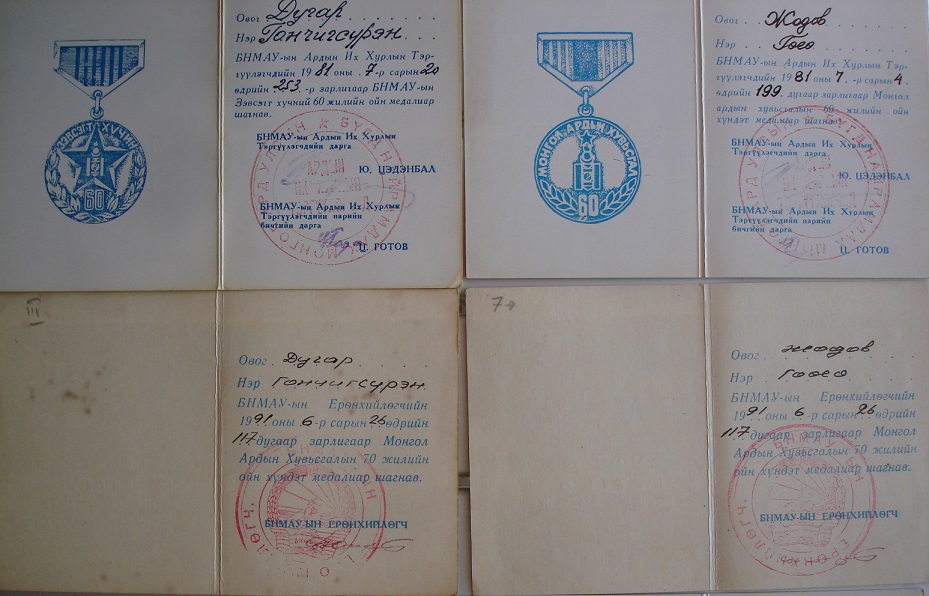 ЗЭВСЭГТ ХҮЧИН
60
Овог Дугар
Нэр Ганчигсүрэн
БНМАУ-ын Ардын Их Хурлын Тэр-
гүүлэгчдийн 1981 оны 7-р сарын 20
өдрийн 253 зарлигаар БНМАУ-ын
Зэвсэгт хүчний 60 жилийн ойн медалиар
шагнав.
БНМАУ-ын Ардын Их Хурлын
Тэргүүлэгчдийн дарга
Ю. ЦЭДЭНБАЛ
БНМАУ-ын Ардын Их Хурлын
Тэргүүлэгчдийн нарийн
бичгийн дарга
Ц. ГОТОВ
МОНГОЛ АРДЫН ХУВЬСГАЛ
60
Овог Жодов
Нэр Гоёо
БНМАУ-ын Ардын Их Хурлын Тэр-
гүүлэгчдийн 1981 оны 7-р сарын 4
өдрийн 199 дугаар зарлигаар Монгол
ардын хувьсгалын 60 жилийн ойн
хүндэт медалиар шагнав.
БНМАУ-ын Ардын Их Хурлын
Тэргүүлэгчдийн дарга
Ю. ЦЭДЭНБАЛ
БНМАУ-ын Ардын Их Хурлын
Тэргүүлэгчдийн нарийн
бичгийн дарга
Ц. ГОТОВ
III
Овог Дугар
Нэр Ганчигсүрэн
БНМАУ-ын Ерөнхийлөгчийн
1991 оны 6-р сарын 26 өдрийн
117 дугаар зарлигаар Монгол
Ардын Хувьсгалын 70 жилийн
ойн хүндэт медалиар шагнав.
БНМАУ-ЫН ЕРӨНХИЙЛӨГЧ
Овог жодов
Нэр гоёо
БНМАУ-ын Ерөнхийлөгчийн
1991 оны 6-р сарын 26
117 дугаар зарлигаар Монгол
Ардын Хувьсгалын 70 жилийн
ойн хүндэт медалиар шагнав.
БНМАУ-ЫН ЕРӨНХИЙЛӨГЧ